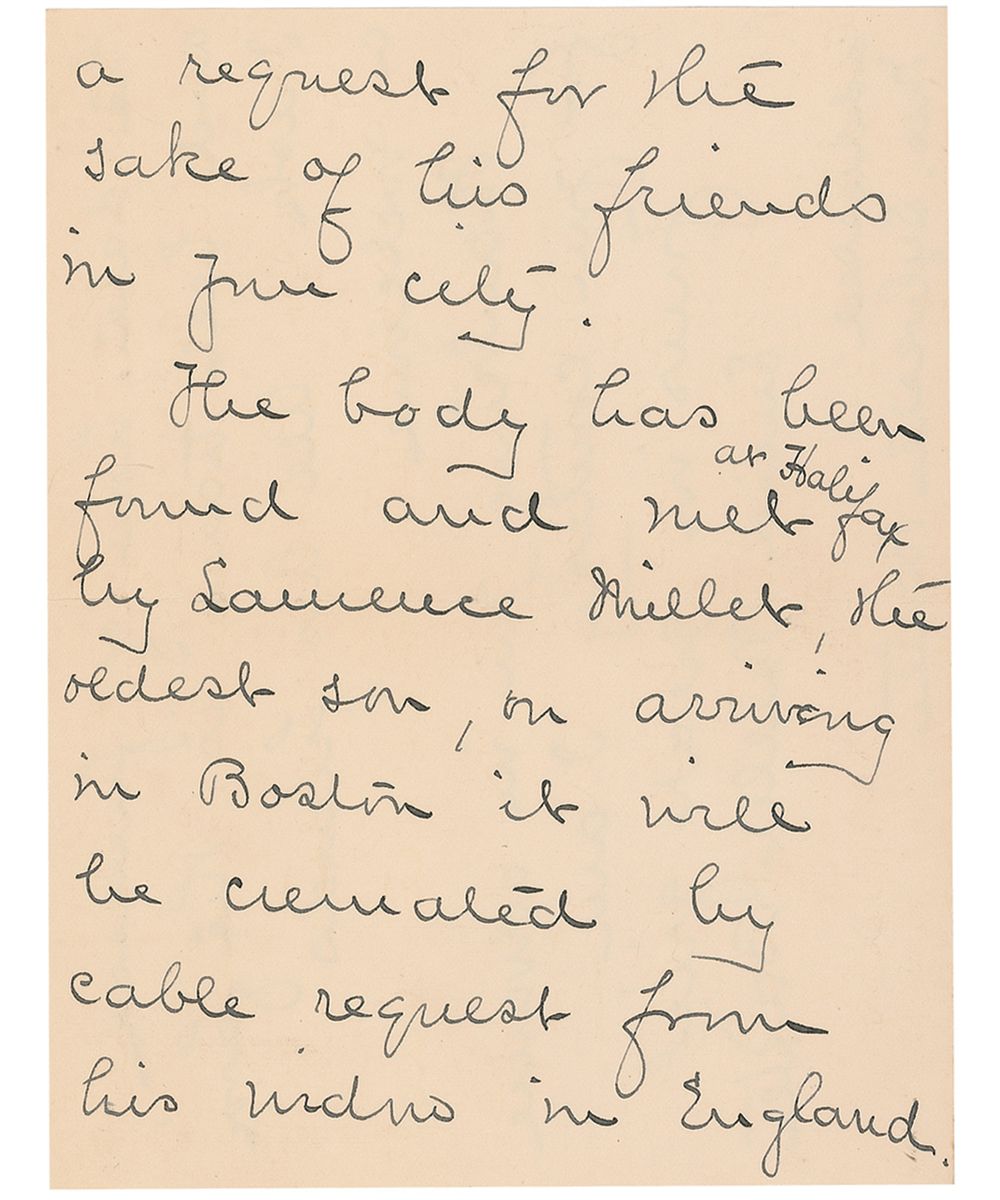 a request for the
sake of his friends
in your city.
The body has been
at Halifax
found and met
by Lawrence Millet, the
oldest son, on arriving
in Boston it will
be cremated by
cable request from
his widow in England.